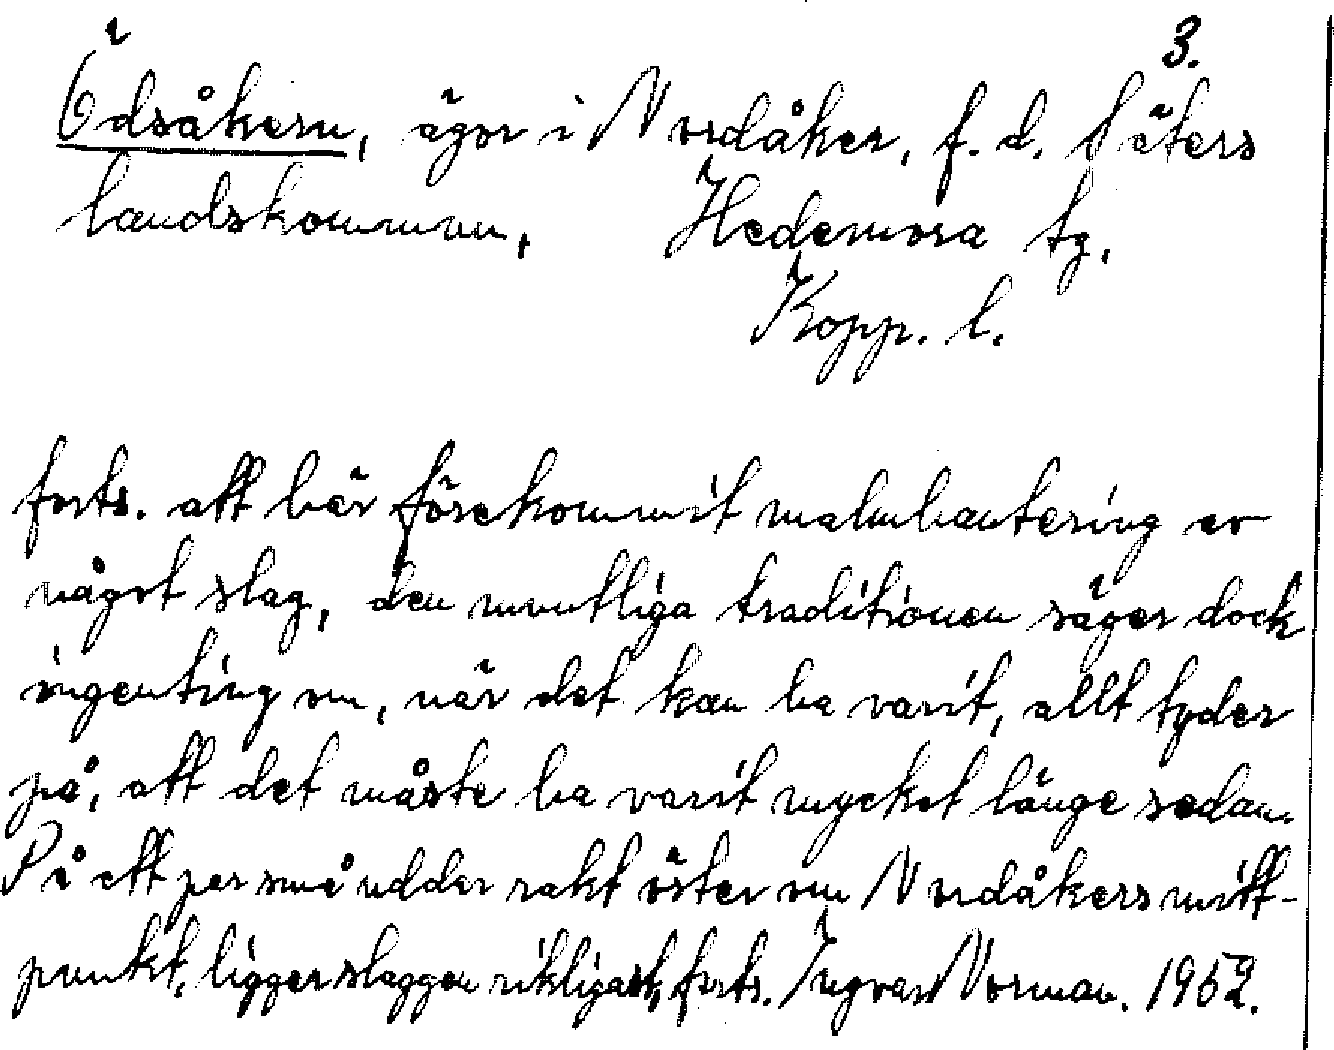 3.
Ödsåkern, ägor i Nordåker, f. d. Säters
landskommun, Hedemora tg.
Kopp. l.
forts. att här förekommit malmhantering av
något slag, den muntliga traditionen säger dock
ingenting om, när det kan ha varit, allt tyder
på, att det måste ha varit mycket länge sedan.
På ett par små uddar rakt öster om Nordåkers mitt-
punkt, ligger slaggen rikligast, forts. Ingvar Norman. 1952.